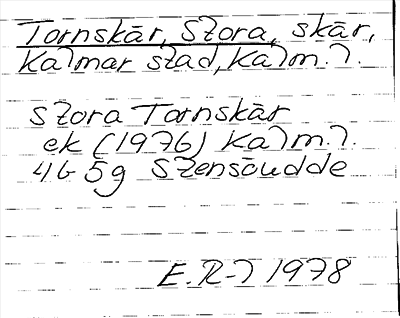 Tornskär, Stora, skär,
Kalmar stad, Kalm.l.
Stora Tornskär
ek (1976) Kalm.l.
4G 5g Stensöudde
E.R-l 1978